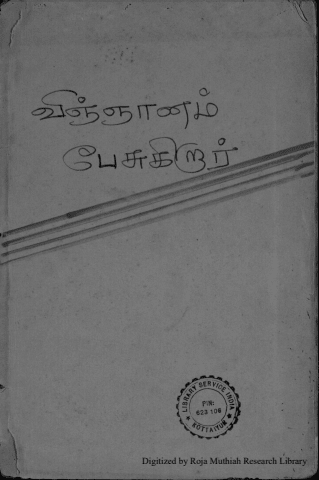 விஞ்ஞானம்
பேசுகிறார்
LIBRARY SERVICE INDIA
PIN:
623 106
KOTTAIYUR
Digitized by Roja Muthiah Research Library